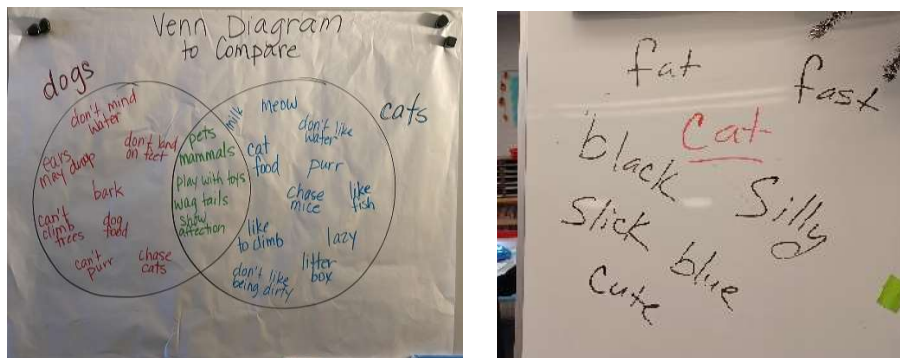 Venn Diagram
to Compare
dogs
don't mind
water
don't land
on feet
ears
may droop
bark
can't
climb
trees
dog
food
can't
purr
chase
cats
pets
mammals
play with toys
wag tails
show
affection
cats
milk
meow
don't like
water
cat
food
purr
chase
mice
like
fish
like
to climb
lazy
litter
box
don't like
being dirty
fat
fast
cat
black
Silly
Slick
blue
Cute